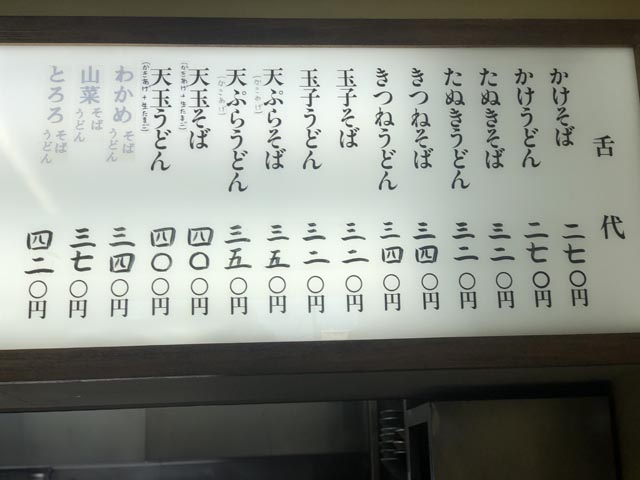 舌代
かけそば 二七〇円
かけうどん 二七〇円
たぬきそば 三二〇円
たぬきうどん 三二〇円
きつねそば 三四〇円
きつねうどん 三四〇円
玉子そば 三二〇円
玉子うどん 三二〇円
天ぷらそば (かきあげ) 三五〇円
天ぷらうどん (かきあげ) 三五〇円
天玉そば (かきあげ+生たまご) 四〇〇円
天玉うどん (かきあげ+生たまご) 四〇〇円
わかめ そば うどん 三四〇円
山菜 そば うどん 三七〇円
とろろ そば うどん 四二〇円